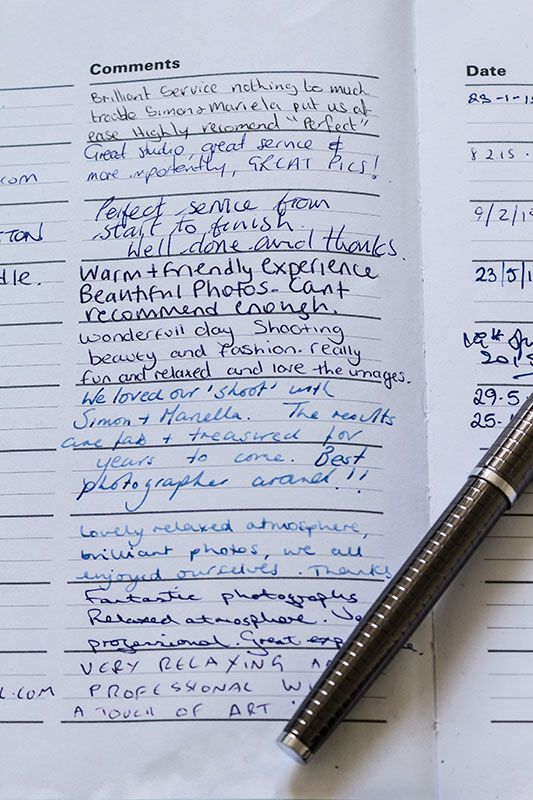 Comments
Brilliant Service nothing to much
trouble Simon + Mariela put us at
ease Highly recomend "Perfect"
Great studio, great service &
more importently, GREAT PICS!
Perfect service from
start to finish.
Well done and thanks.
Warm + friendly experience
Beautiful Photos - Can't
recommend enough.
Wonderfull day Shooting
beauty and Fashion. really
fun and relaxed and love the images.
We loved our 'shoot' with
Simon + Mariella. The results
are fab + treasured for
years to come. Best
photographer around!!
Lovely relaxed atmosphere,
brilliant photos, we all
enjoyed ourselves. Thanks
Fantastic photographs
Relaxed atmosphere.
professional. Great
VERY RELAXING
PROFESSIONAL
A TOUCH OF ART
.COM
TON
dle.
.COM
Date
23-1-15
8215.
9/2/1
23/5/1
29.5.
25.